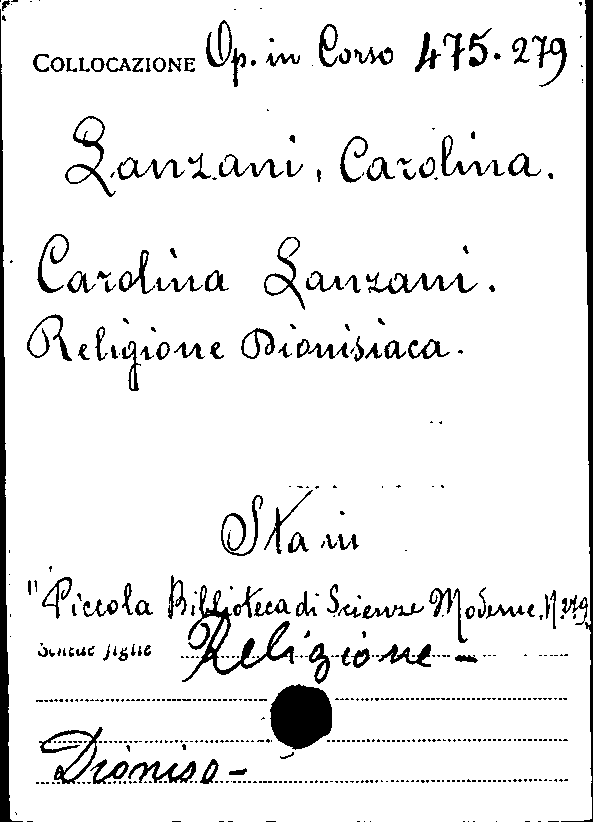 COLLOCAZIONE Op. in Corso 475.279
Lanzani, Carolina.
Carolina Lanzani.
Religione Dionisiaca.
Sta in
"Piccola Biblioteca di Scienze Moderne, N. 279
Schede figlie Religione -
Dioniso -